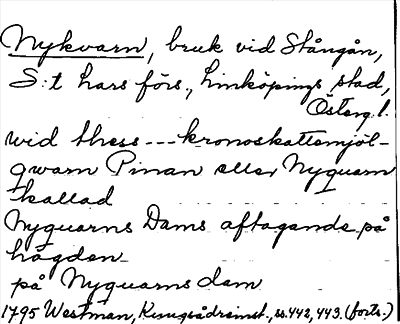 Nykvarn, bruk vid Stångån,
S:t Lars förs., Linköpings stad,
Österg.l.
wid thess --- kronoskattemjöl-
qwarn Pinan eller Nyquarn
kallad
Nyquarns Dams aftagande på
högden
på Nyquarns dam
1795 Westman, ss. 442, 443. (forts.)